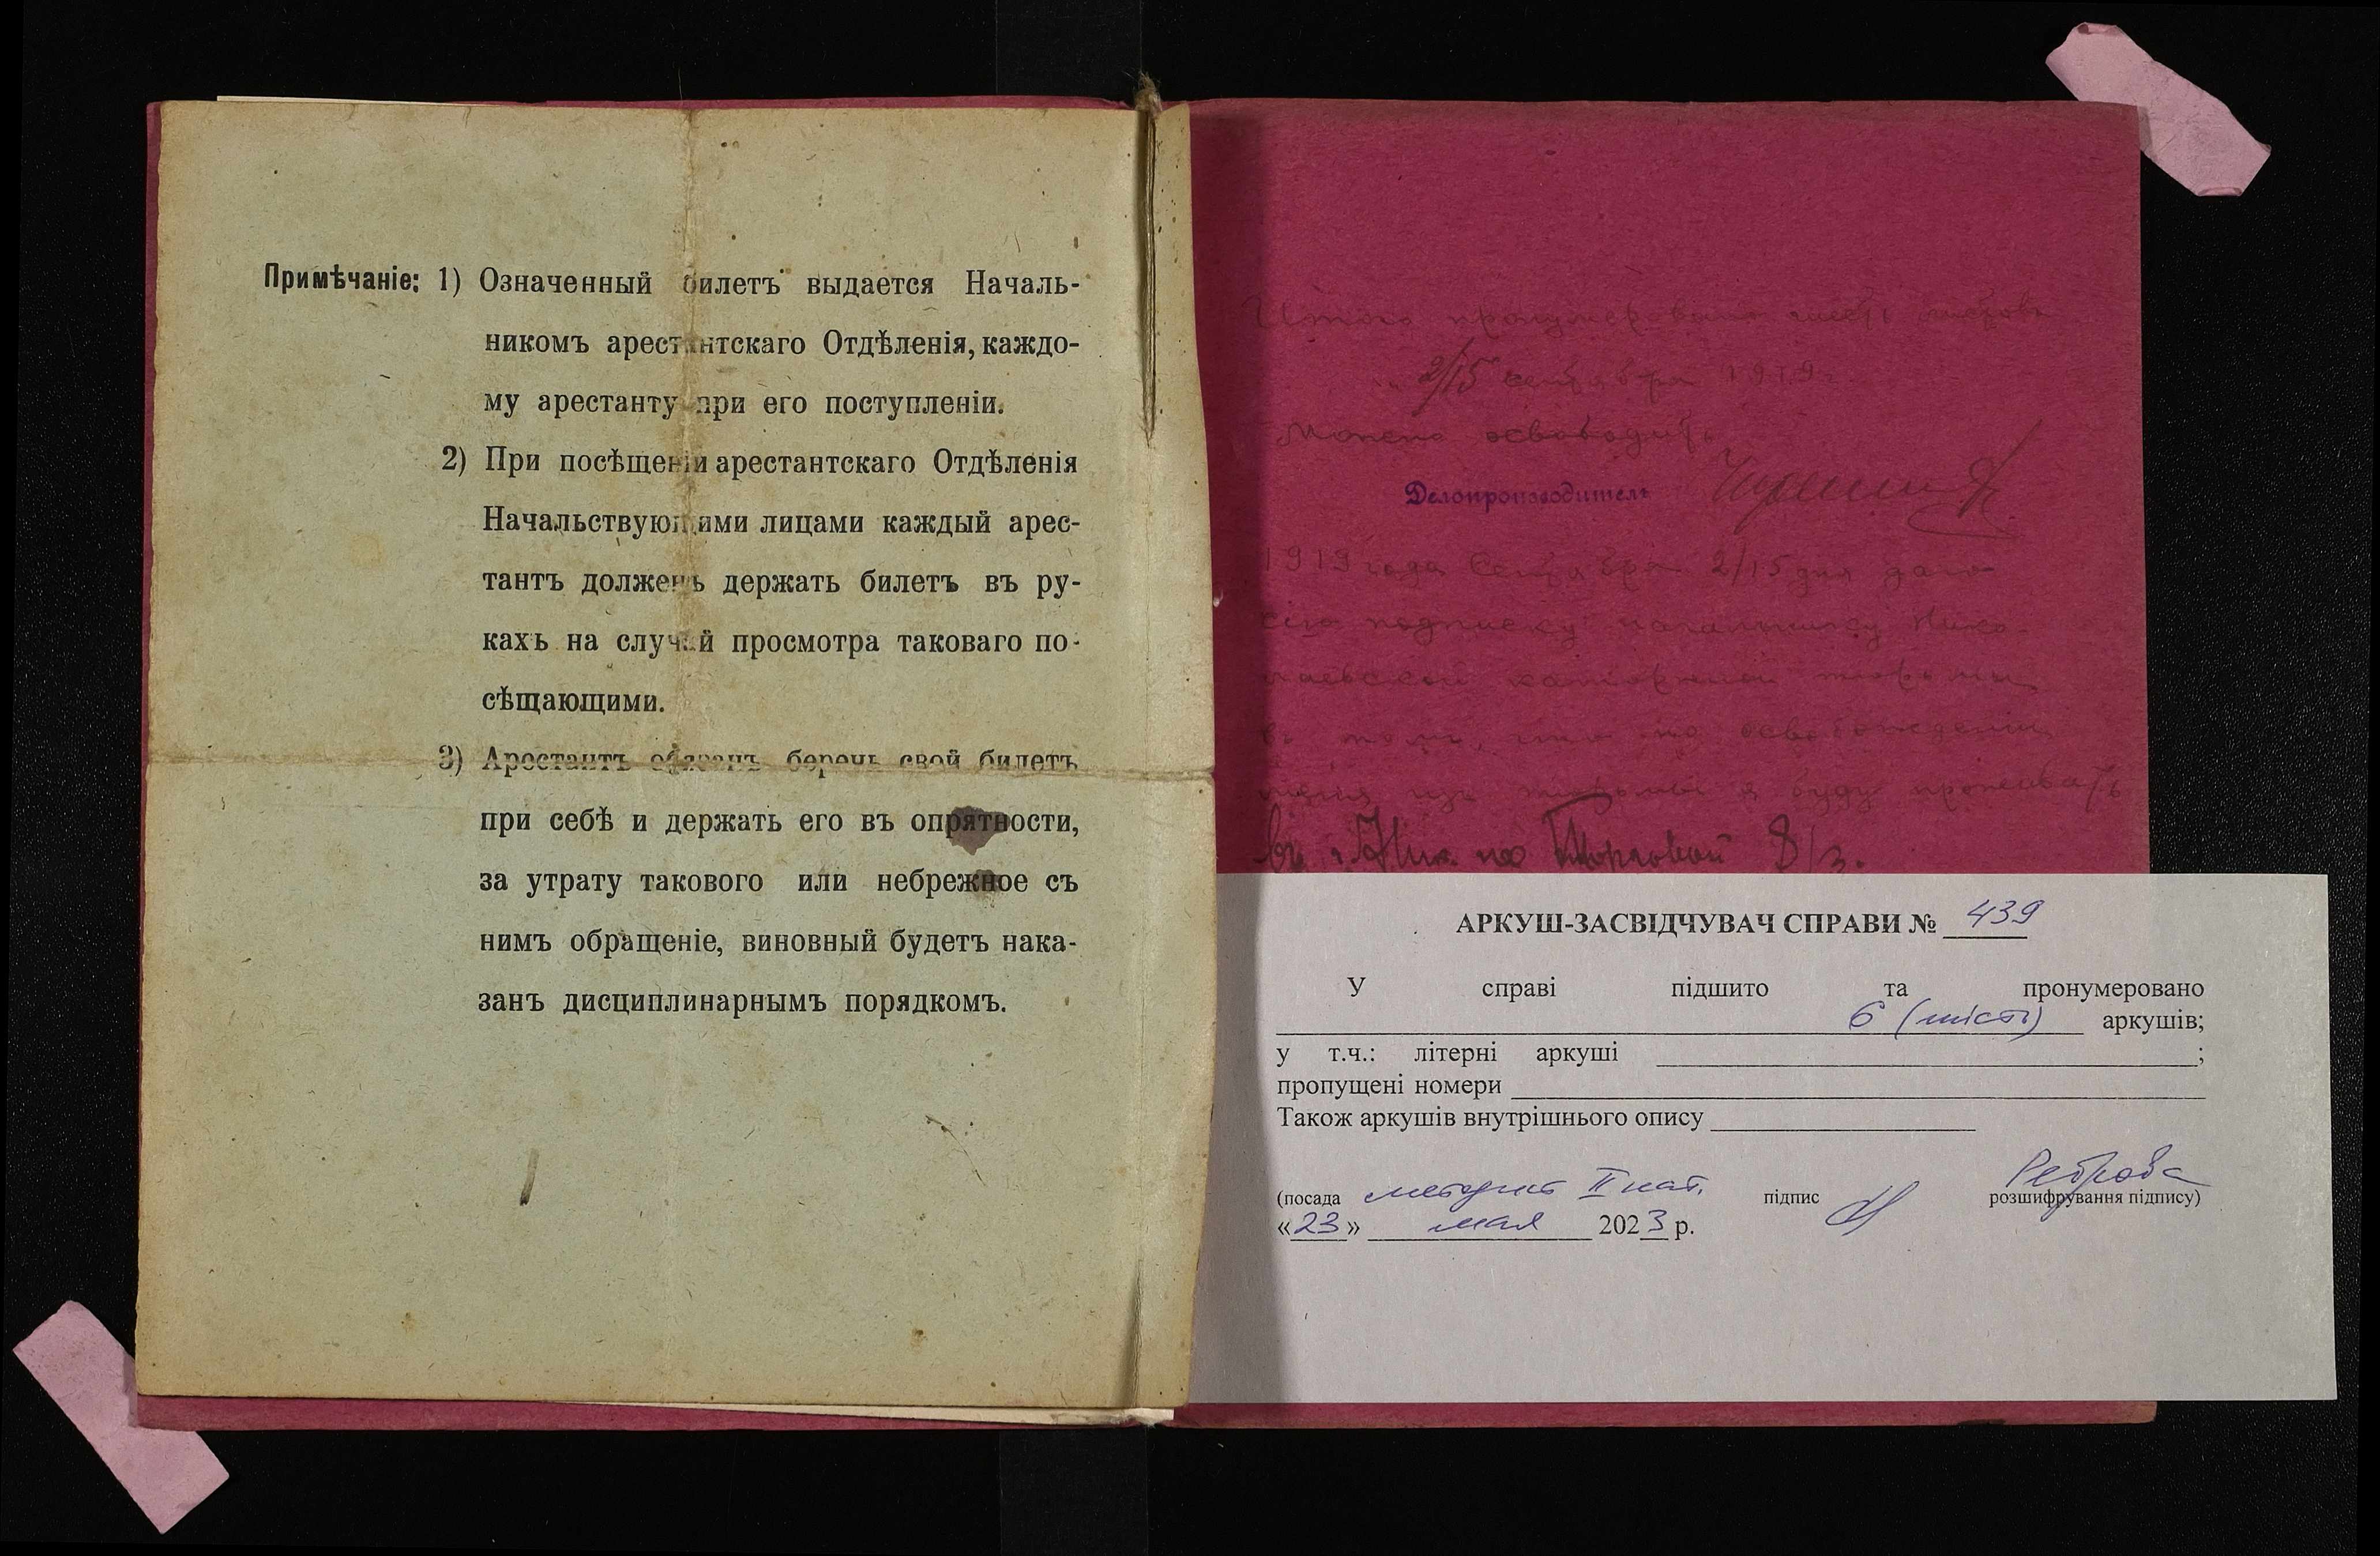 Примѣчаніе: 1) Означенный билетъ выдается Началь-
никомъ арестантскаго Отдѣленія, каждо-
му арестанту при его поступленіи.
2) При посѣщеніи арестантскаго Отдѣленія
Начальствующими лицами каждый арес-
тантъ долженъ держать билетъ въ ру-
кахъ на случай просмотра таковаго по-
сѣщающими.
3) Арестантъ обязанъ беречь свой билетъ
при себѣ и держать его въ опрятности,
за утрату такового или небрежное съ
нимъ обращеніе, виновный будетъ нака-
занъ дисциплинарнымъ порядкомъ.
Итого пронумеровано шесть листовъ
2/15 сентября 1919 г.
Можно освободить
Делопроизводитель
1919 года Сентября 2/15 дня даю
сію подписку начальнику Нико-
лаевской каторжной тюрьмы
въ томъ, что по освобожденіи
меня изъ тюрьмы я буду проживать
въ г. Ник. по Торговой 8/3.
АРКУШ-ЗАСВІДЧУВАЧ СПРАВИ № 439
У справі підшито та пронумеровано
6 (шість) аркушів;
у т.ч.: літерні аркуші ;
пропущені номери
Також аркушів внутрішнього опису
(посада методист II кат. підпис Реброва розшифрування підпису)
«23» мая 2023 р.